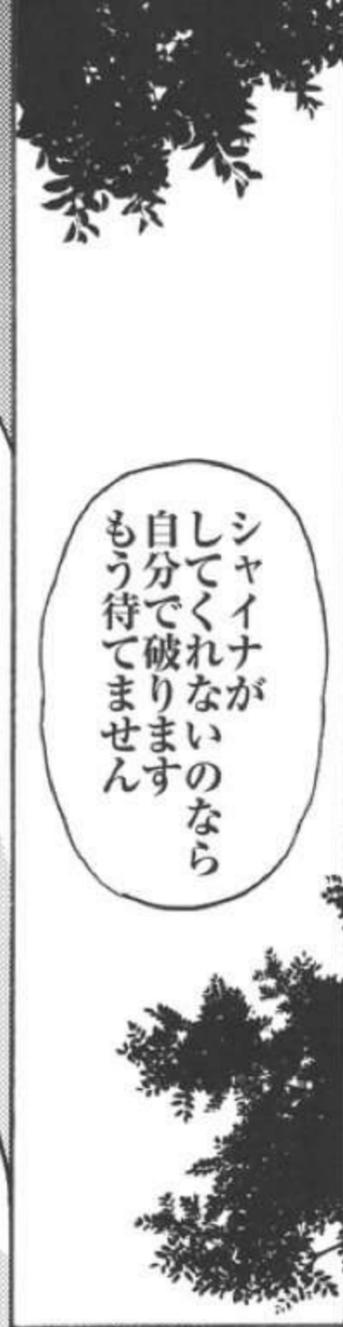 シャイナが
してくれないのなら
自分で破ります
もう待てません